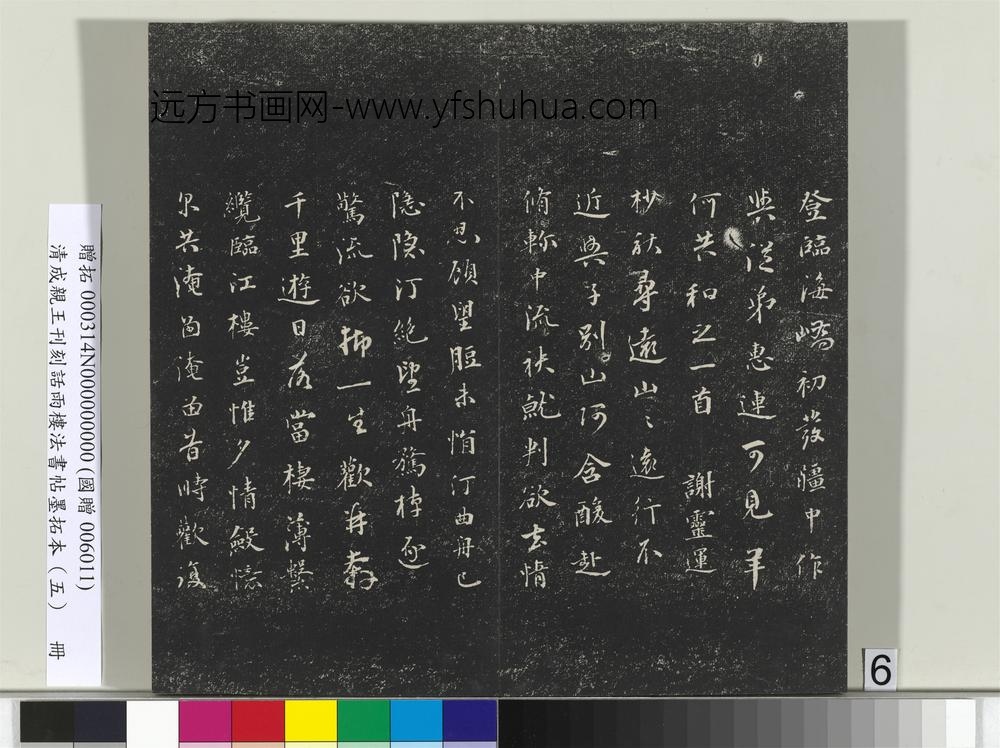 登臨海嶠初發疆中作
與從弟惠連可見羊
何共和之一首 謝靈運
杪秋尋遠山〻遠行不
近與子別山阿含酸赴
脩畛中流袂就判欲去情
不忍顧望脰未悁汀曲舟已
隱隱汀絕望舟騖棹逐
驚流欲抑一生歡并奔
千里遊日落當棲薄繫
纜臨江樓豈惟夕情斂憶
尔共淹留淹留昔時歡復
贈拓 000314N000000000 (國贈 006011)
清成親王刊刻話雨樓法書帖墨拓本（五） 冊
远方书画网-www.yfshuhua.com
6